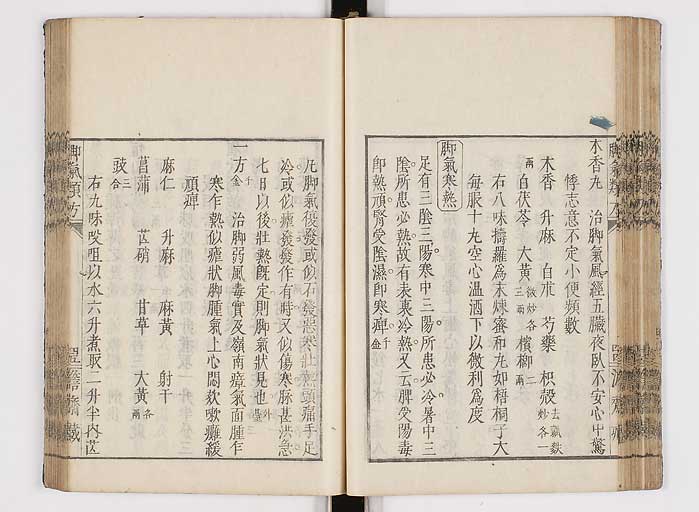 木香丸 治脚氣風經五臟夜臥不安心中驚
悸志意不定小便頻數
木香 升麻 白朮 芍藥 枳殼去瓤麩炒各一
兩 白茯苓 大黃微炒各三兩 檳榔二兩
右八味擣羅爲末煉蜜和丸如梧桐子大
每服十九空心温酒下以微利爲度
脚氣寒熱
足有三陰三陽寒中三陽所患必冷暑中三
陰所患必熱故有表裏冷熱又云脾受陽毒
卽熱頑腎受陰濕卽寒痺千金
凡脚氣復發或似石發惡寒壯熱頭痛手足
冷或似瘧發發作有時又似傷寒脉甚洪急
七日以後壯熱旣定則脚氣狀見也外臺
一方千金 治脚弱風毒實及嶺南瘴氣面腫乍
寒乍熱似瘧狀脚腫氣上心悶欬嗽癱緩
頑痺
麻仁 升麻 麻黃 射干
菖蒲 芒硝 甘草 大黃各兩
豉三合
右九味㕮咀以水六升煮取二升半內芒
脚氣類方